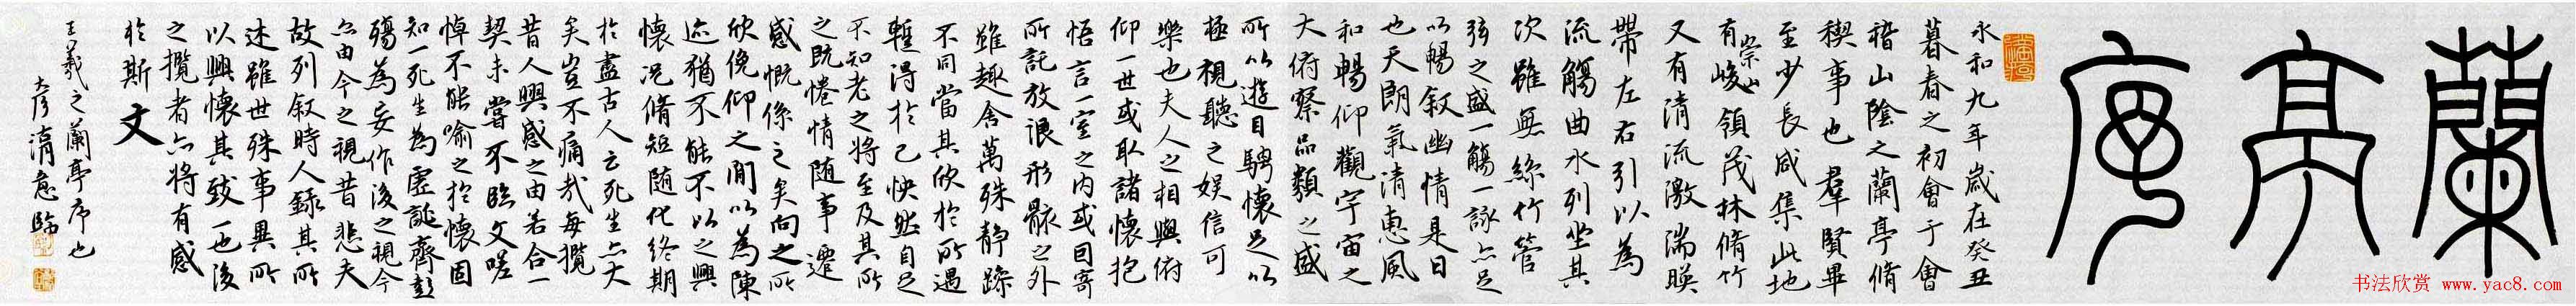 蘭亭序
永和九年歲在癸丑
暮春之初會于會
稽山陰之蘭亭脩
稧事也羣賢畢
至少長咸集此地
有崇山峻領茂林脩竹
又有清流激湍暎
帶左右引以為
流觴曲水列坐其
次雖無絲竹管
弦之盛一觴一詠亦足
以暢叙幽情是日
也天朗氣清惠風
和暢仰觀宇宙之
大俯察品類之盛
所以遊目騁懷足以
極視聽之娛信可
樂也夫人之相與俯
仰一世或取諸懷抱
悟言一室之內或因寄
所託放浪形骸之外
雖趣舍萬殊靜躁
不同當其欣於所遇
蹔得於己怏然自足
不知老之將至及其所
之既惓情随事遷
感慨係之矣向之所
欣俛仰之閒以為陳
迹猶不能不以之興
懷況脩短随化終期
於盡古人云死生亦大
矣豈不痛哉每攬
昔人興感之由若合一
契未嘗不臨文嗟
悼不能喻之於懷固
知一死生為虛誕齊彭
殤為妄作後之視今
亦由今之視昔悲夫
故列叙時人錄其所
述雖世殊事異所
以興懷其致一也後
之攬者亦將有感
於斯文
王羲之蘭亭序也
书法欣赏 www.yac8.com